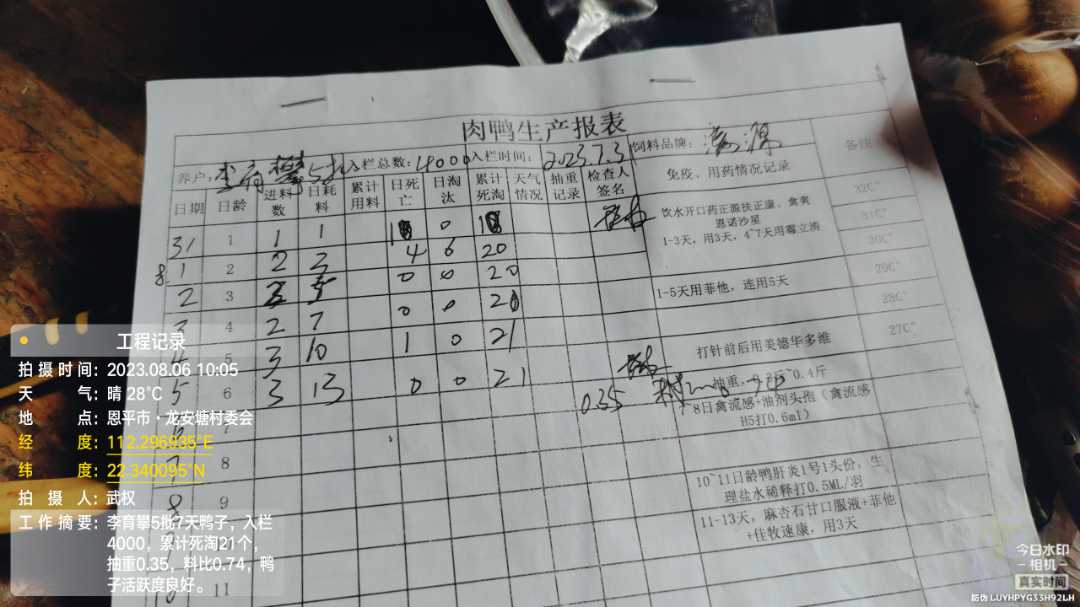 肉鸭生产报表
养户: 李育攀5批 入栏总数: 4000 入栏时间: 2023.7.31 饲料品牌:
备注
日期 日龄 进料数 日耗料 累计用料 日死亡 日淘汰 累计死淘 天气情况 抽重记录 检查人签名 免疫、用药情况记录
31 1 1 1 0
8.1 2 2 4 6 20
2 3 0 0 20
3 4 2 7 0 0 20
4 5 3 10 1 0 21
5 6 3 13 0 0 21 0.35
7
7 8
8 9
11
32C°
31C°
30C°
29C°
28C°
27C°
饮水开口药正源扶正康、禽爽
恩诺沙星
1-3天，用3天，4~7天用霉立清
1-5天用菲他，连用5天
打针前后用美德华多维
抽重，
0.4斤
8日禽流感+油剂头孢（禽流感
H5打0.6ml）
10~11日龄鸭肝炎1号1头份，生
理盐水稀释打0.5ML/羽
11-13天，麻杏石甘口服液+菲他
+佳牧速康，用3天
工程记录
拍摄时间：2023.08.06 10:05
天气：晴 28°C
地点：恩平市·龙安塘村委会
经度：112.296935°E
纬度：22.340095°N
拍摄人：武权
工作摘要：李育攀5批7天鸭子，入栏
4000，累计死淘21个，
抽重0.35，料比0.74，鸭
子活跃度良好。
今日水印
-相机-
真实时间
防伪 LUYHPYG33H92LH